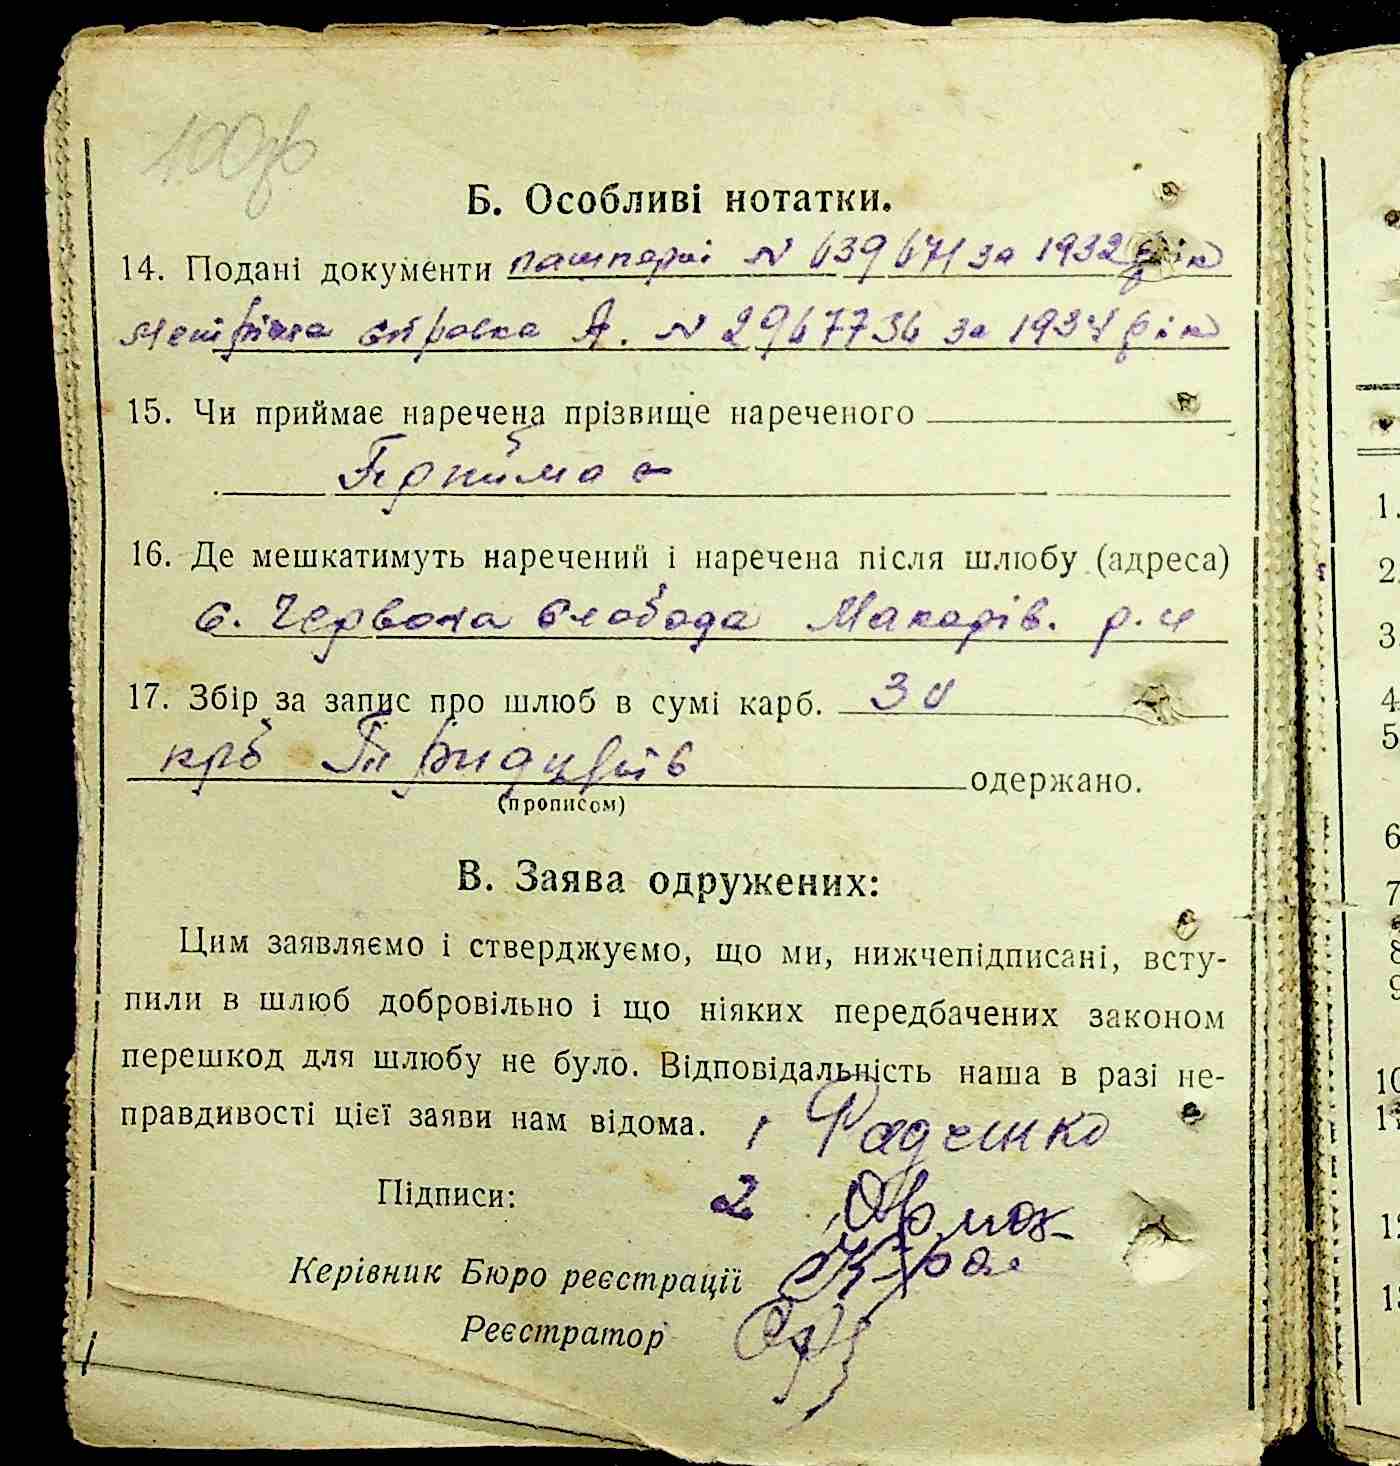 Б. Особливі нотатки.
14. Подані документи пашпорт № 639671 за 1932 рік
Метрична справка А. № 2967736 за 1934 рік
15. Чи приймає наречена прізвище нареченого
Прийма
16. Де мешкатимуть наречений і наречена після шлюбу (адреса)
с. Червона Слобода Макарів. р.н
17. Збір за запис про шлюб в сумі карб. 30
крб Тридцять одержано.
(прописом)
В. Заява одружених:
Цим заявляємо і стверджуємо, що ми, нижчепідписані, всту-
пили в шлюб добровільно і що ніяких передбачених законом
перешкод для шлюбу не було. Відповідальність наша в разі не-
правдивості цієї заяви нам відома. 1 Радченко
Підписи: 2
Керівник Бюро реєстрації
Реєстратор
1.
2.
3.
4
5
6
7
8
9
10
1
12
1